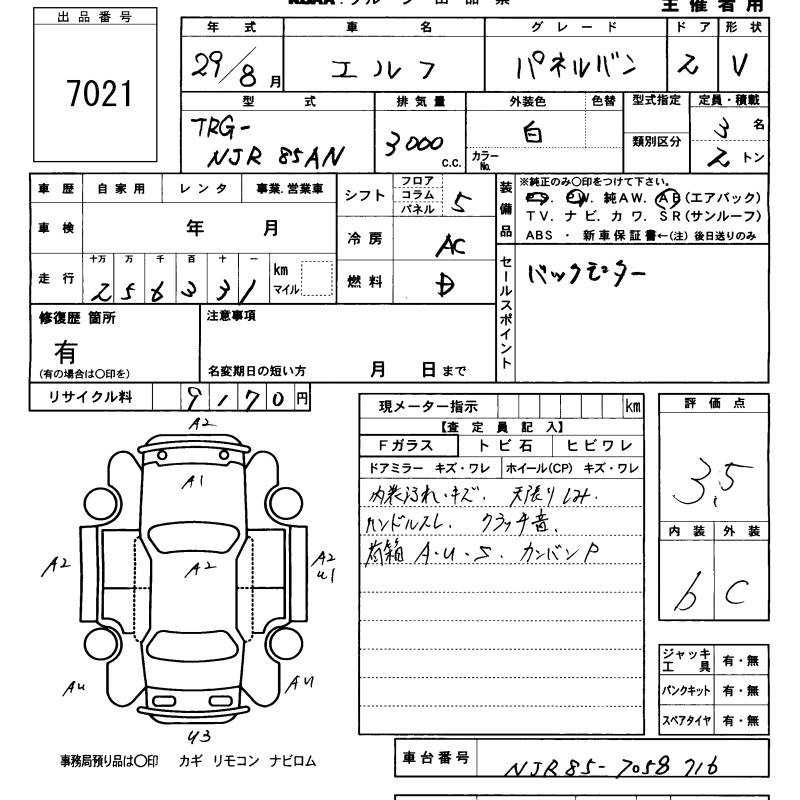 主催者用
出品番号
7021
年式 車名 グレード ドア 形状
29/8月 エルフ パネルバン 2 V
型式 排気量 外装色 色替 型式指定 定員・積載
TRG-NJR85AN 3000 c.c. 白 カラーNo. 類別区分 3名 2トン
車歴 自家用 レンタ 事業.営業車
車検 年 月
走行 十万 万 千 百 十 一 km マイル
256331
シフト フロア コラム パネル 5
冷房 AC
燃料 D
装備品 ※純正のみ○印をつけて下さい。
P.S. P.W. 純AW. AB(エアバック)
TV. ナビ. カワ. SR(サンルーフ)
ABS ・ 新車保証書←(注) 後日送りのみ
セールスポイント
バックモター
修復歴 箇所
有
(有の場合は○印を)
注意事項
名変期日の短い方 月 日まで
リサイクル料 9170円
現メーター指示 km
【査定員記入】
Fガラス トビ石 ヒビワレ
ドアミラー キズ・ワレ ホイール(CP) キズ・ワレ
内装汚れ・キズ. 天張りしみ.
ハンドルスレ. クラッチ音.
荷箱 A・U・S. カンバンP
評価点
3.5
内装 外装
b C
A2
A1
A2
A2
A2
U1
AU
AU
U3
ジャッキ工具 有・無
パンクキット 有・無
スペアタイヤ 有・無
事務局預り品は○印 カギ リモコン ナビロム
車台番号 NJR85-7058716